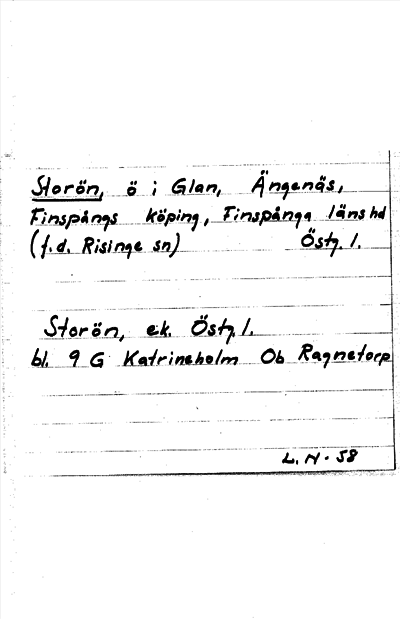 Storön, ö i Glan, Ängenäs,
Finspångs köping, Finspånga läns hd
(f.d. Risinge sn) Östg. l.
Storön, ek. Östg. l.
bl. 9 G Katrineholm Ob Ragnetorp
L. N - 58